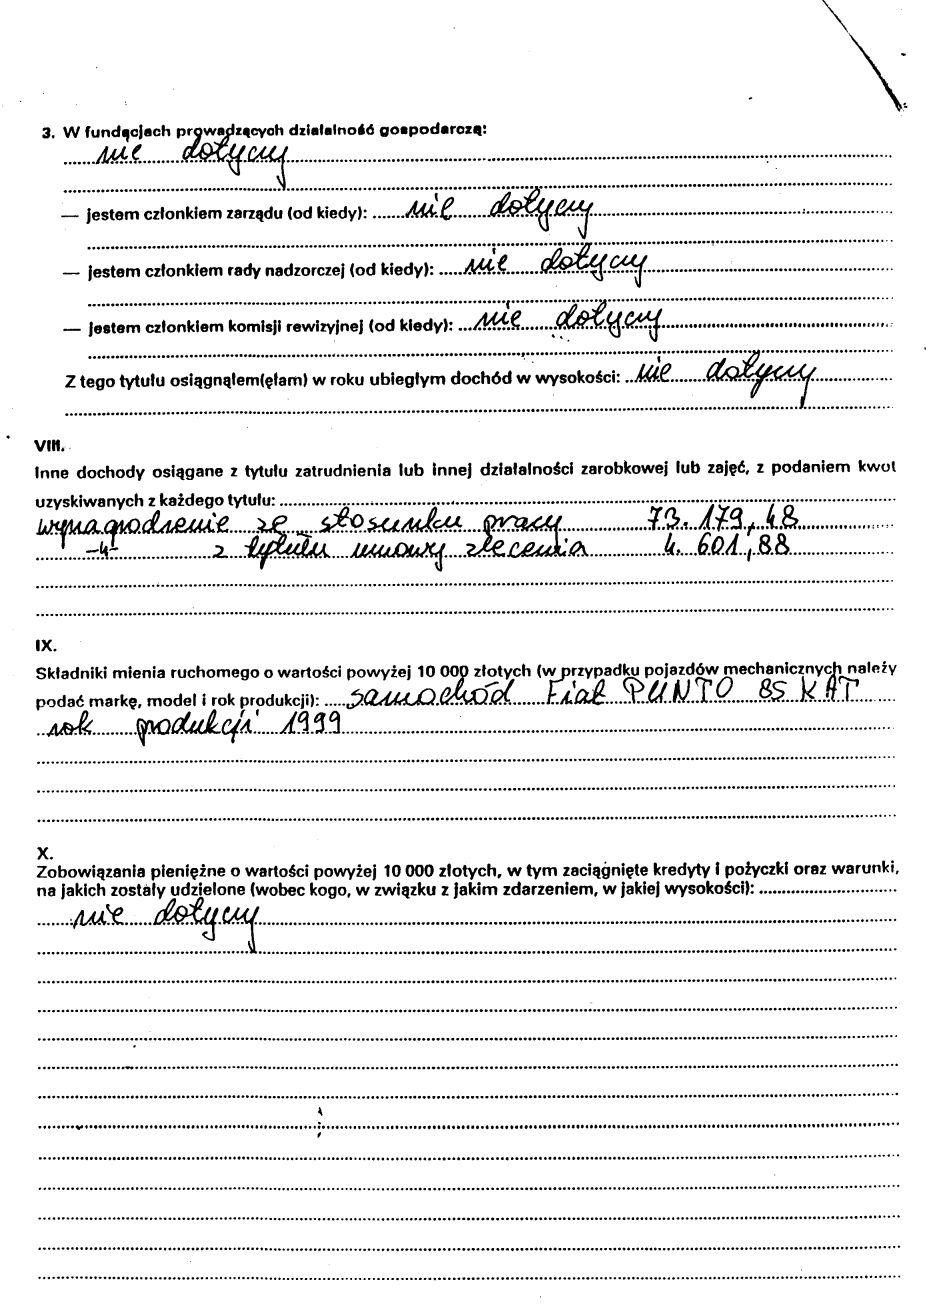 3. W fundacjach prowadzących działalność gospodarczą:
nie dotyczy
— jestem członkiem zarządu (od kiedy): nie dotyczy
— jestem członkiem rady nadzorczej (od kiedy): nie dotyczy
— jestem członkiem komisji rewizyjnej (od kiedy): nie dotyczy
Z tego tytułu osiągnąłem(ęłam) w roku ubiegłym dochód w wysokości: nie dotyczy
VIII.
Inne dochody osiągane z tytułu zatrudnienia lub innej działalności zarobkowej lub zajęć, z podaniem kwot
uzyskiwanych z każdego tytułu:
wynagrodzenie ze stosunku pracy 73.179,48
-"- z tytułu umowy zlecenia 4.601,88
IX.
Składniki mienia ruchomego o wartości powyżej 10 000 złotych (w przypadku pojazdów mechanicznych należy
podać markę, model i rok produkcji): samochód Fiat PUNTO 85 KAT
rok produkcji 1999
X.
Zobowiązania pieniężne o wartości powyżej 10 000 złotych, w tym zaciągnięte kredyty i pożyczki oraz warunki,
na jakich zostały udzielone (wobec kogo, w związku z jakim zdarzeniem, w jakiej wysokości):
nie dotyczy